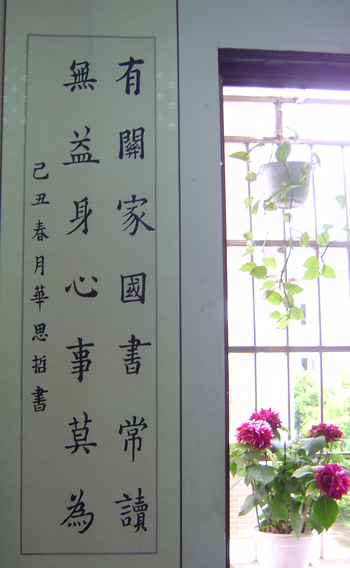 有關家國書常讀
無益身心事莫為
己丑春月華思哲書